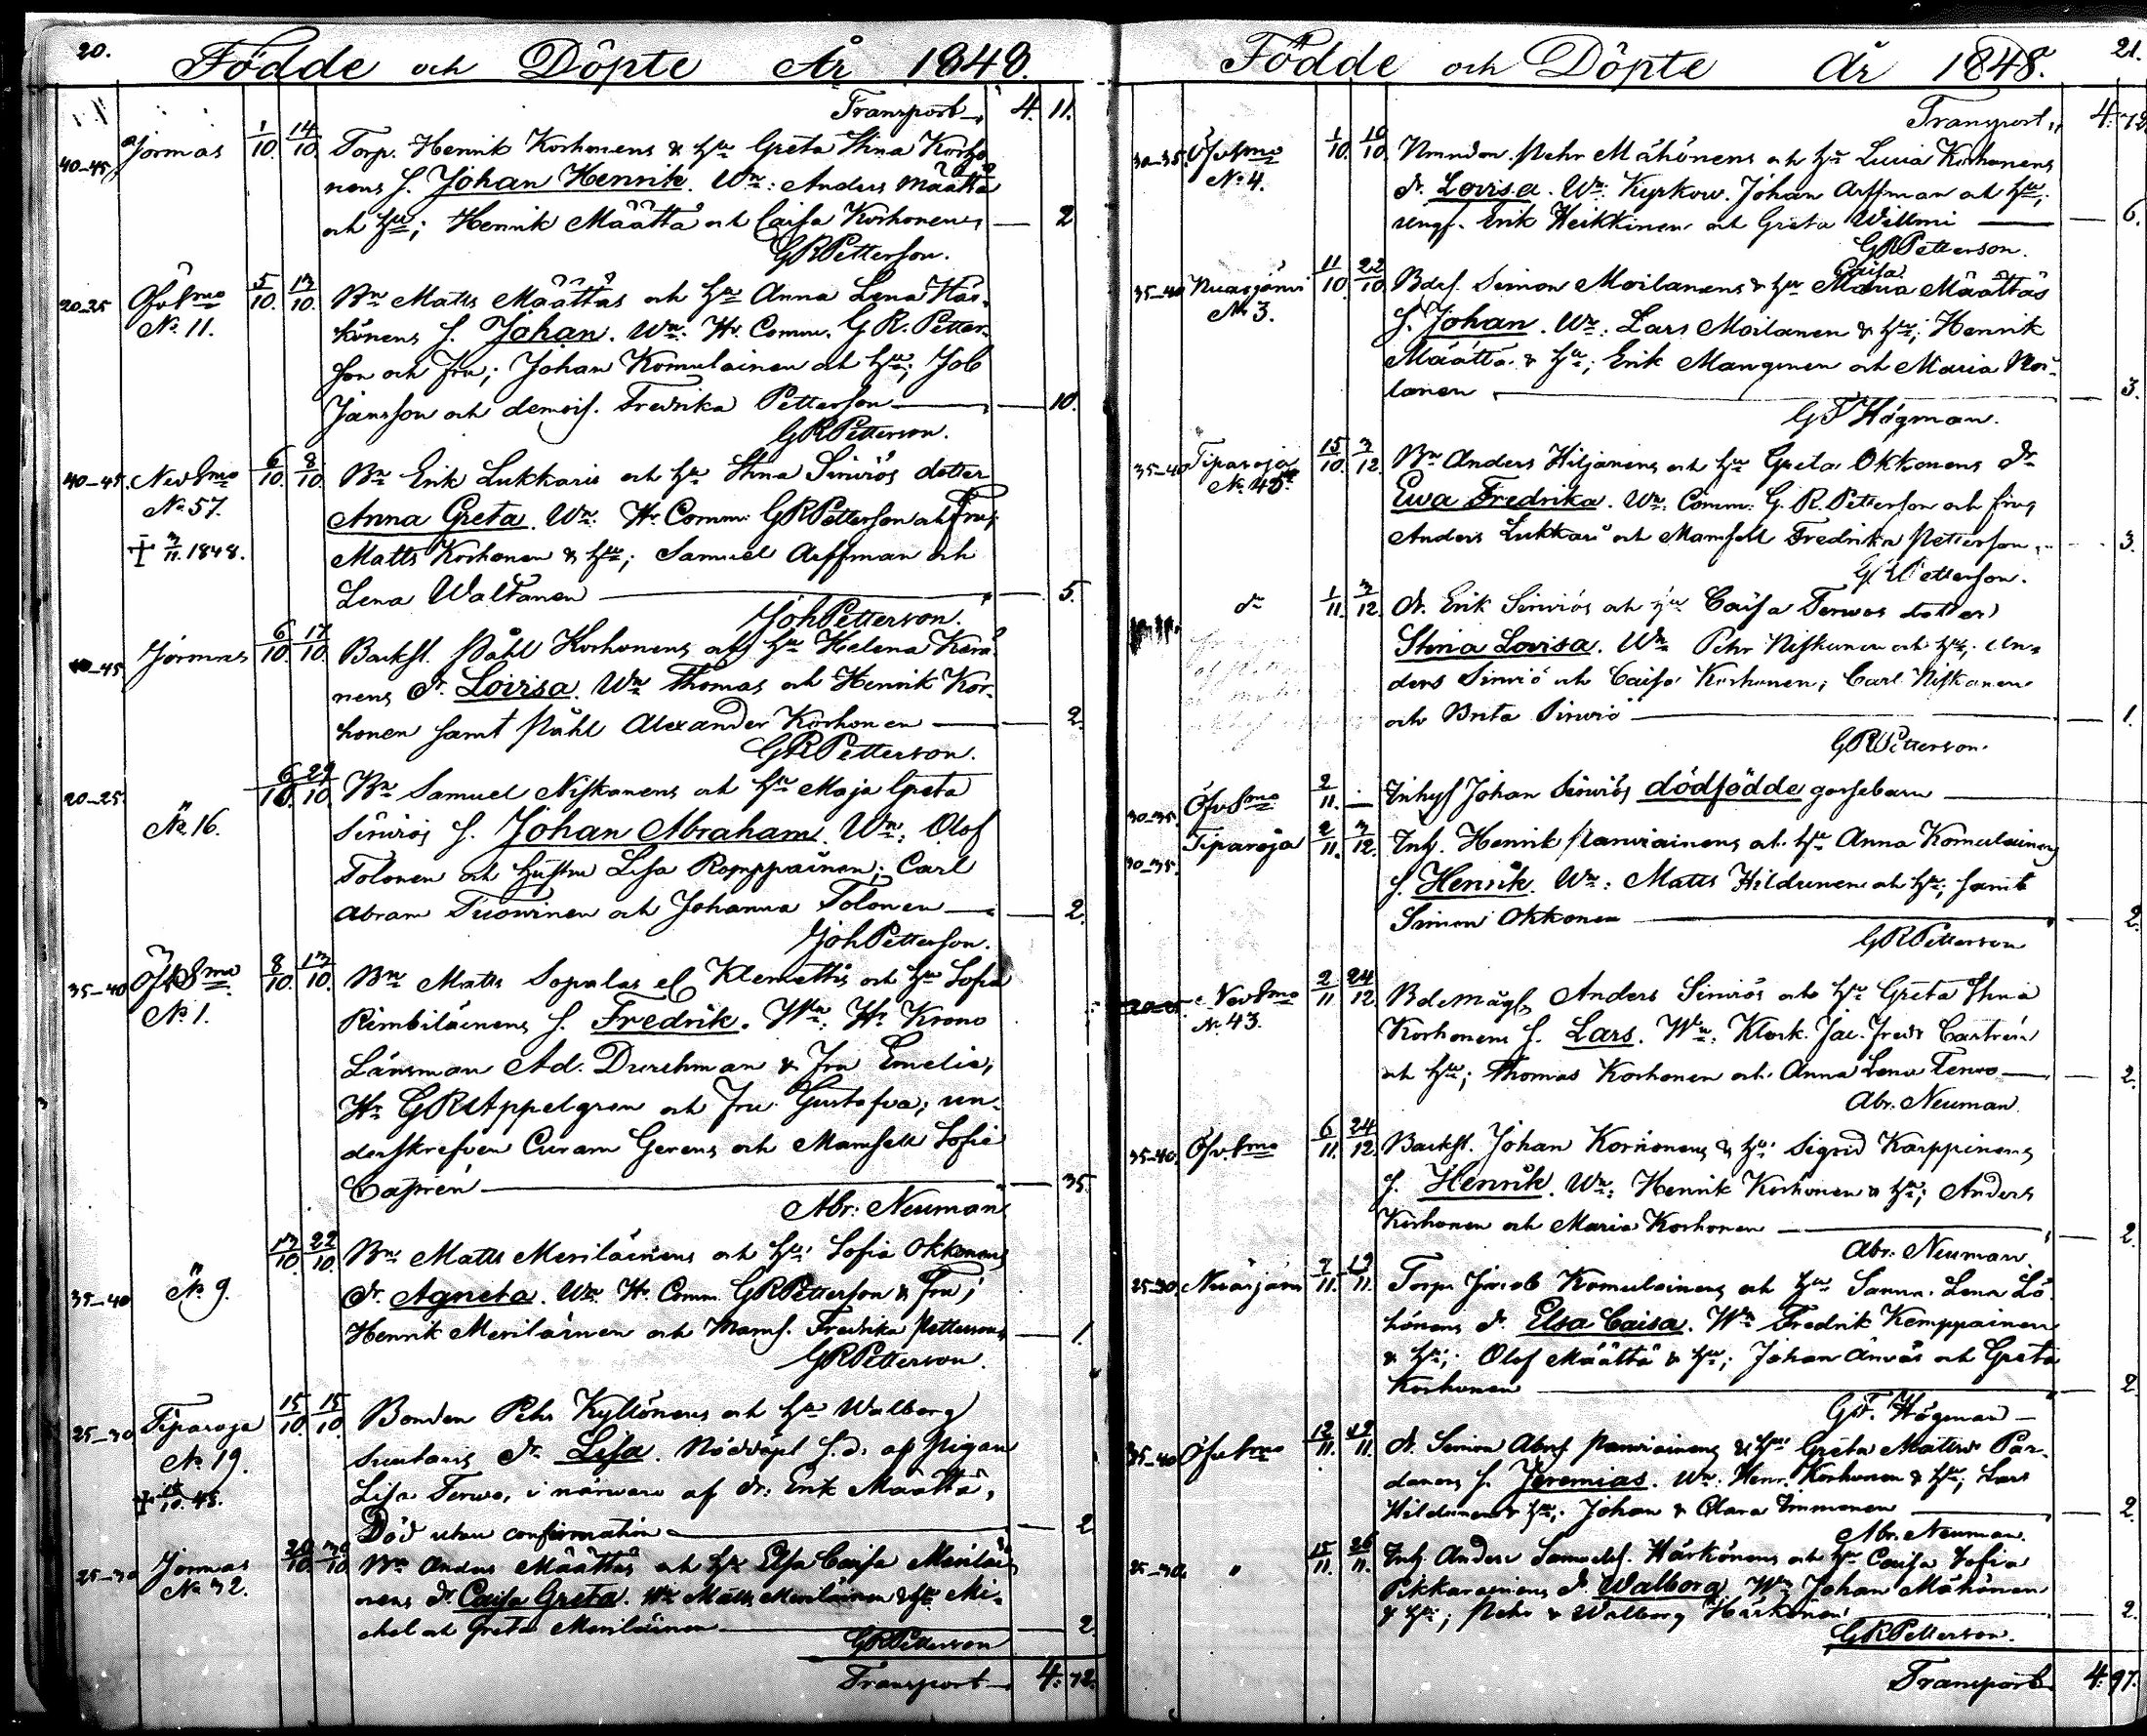 20.
Födde och Döpte År 1848.
Transport 4. 11.
40-45 Jormas 1/10. 14/10. Torp. Henrik Korhonens & hu Greta Stina Korho
nens S. Johan Henrik. Wn: Anders Määttä
och hu; Henrik Määttä och Caisa Korhonen 2
GRPetterson.
20-25 Öfv.Smo 5/10. 13/10. Bn Matts Määttäs och hu Anna Lena Här-
No. 11. könens S. Johan. Wn: Hr Comm. G R. Petter-
son och fru; Johan Komulainen och hu; Job
Jansson och demois. Fredrika Petterson 10.
GRPetterson.
40-45. Ned Smo 6/10. 8/10. Bn Erik Lukkaris och hu Stina Sirviös dotter
No. 57. Anna Greta. Wn: Hr Comm: GRPetterson och Fru;
+ 3/11. 1848. Matts Korhonen & hu; Samuel Arffman och
Lena Waltanen 5.
JohPetterson.
40-45 Jormas 6/10. 17/10. Backst. Påhl Korhonens och hu Helena Kerä-
nens dr. Lovisa. Wn Thomas och Henrik Kor-
honen samt Påhl Alexander Korhonen 2.
GRPetterson.
20-25. 6/10. 29/10. Bn Samuel Niskanens och hu Maja Greta
" No. 16. Sirviös S. Johan Abraham. Wn: Olof
Tolonen och hustru Lisa Romppainen; Carl
Abram Tuowinen och Johanna Tolonen 2.
JohPetterson.
35-40 Öfv Smo 8/10. 13/10. Bn Matts Sopalas el Klemettis och hu Sofia
No. 1. Kimbiläinens S. Fredrik. Wn: Hr Krono
Länsman Ad. Durchman & Fru Emelie,
Hr GRAppelgren och Fru Gustafva; un-
derskrefven Curam Gerens och Mamsell Sofie
Castrén 35.
Abr. Neuman
35-40 " No. 9. 13/10. 22/10. Bn Matts Meriläinens och hu Sofia Okkonens
dr. Agneta. Wn. Hr Comm GRPetterson & Fru;
Henrik Meriläinen och Mams. Fredrika Petterson 1.
GRPetterson.
25-30 Tiparoja 15/10. 15/10. Bonden Pehr Kyllönens och hu Walborg
No. 19. Suutaris dr. Lisa. Nöddöpt s.d. af Pigan
+ 10. 48. Lisa Terwo, i närvaro af dr. Erik Määttä,
Död utan confirmation 2
25-30 Jormas 20/10. 30/10 Bn Anders Määttäs och hu Elsa Caisa Meriläi-
No 32. nens dr Caisa Greta. Wn Matts Meriläinen & hu Mi-
chel och Greta Meriläinen 2.
GRPetterson
Transport 4. 72.
21.
Födde och Döpte År 1848.
Transport 4. 72
30-35. Öfv Smo 1/10. 10/10. Nmndm. Pehr Mähönens och hu Lucia Korhonens
No 4. dr. Lovisa. Wn: Kyrkow. Johan Arffman och hu;
ungk. Erik Heikkinen och Greta Willmi 6.
GRPetterson.
35-40 Nuasjärvi 11/10. 22/10 Bdes. Simon Moilanens & hu Caisa Maria Määttäs
No 3. S. Johan. Wn: Lars Moilanen & hu; Henrik
Määttä & hu; Erik Manginen och Maria Moi-
lanen 3.
GF Högman.
35-40 Tiparoja 15/10. 3/12. Bn Anders Hiljanens och hu Greta Okkonens dr
No. 45. Ewa Fredrika. Wn: Comm: G. R. Petterson och fru;
Anders Lukkari och Mamsell Fredrika Petterson 3.
GRPetterson.
do 1/11. 3/12. dr. Erik Sirviös och hu Caisa Terwos dotter
Stina Lovisa. Wn Pehr Niskanen och hu; An-
ders Sirviö och Caisa Korhonen; Carl Niskanen
och Brita Sirviö 1.
GRPetterson.
30-35. Öfv.Smo 2/11. — Inhys Johan Sirviös dödfödde gossebarn
30-35. Tiparoja 2/11. 3/12. Inh. Henrik Parviainens och hu Anna Komulainens
S. Henrik. Wn: Matts Hildunen och hu; samt
Simon Okkonen 2.
GRPetterson
Ned Smo 2/11 24/12 Bdemågs Anders Sirviös och hu Greta Stina
No. 43. Korhonens S. Lars. Wn: Klock. Jac. Fredr Castrén
och hu; Thomas Korhonen och Anna Lena Terwo 2.
Abr. Neuman.
35-40. Öfv.Smo 6/11. 24/12. Backst. Johan Korhonens & hu Sigrid Karppinens
S. Henrik. Wn: Henrik Korhonen & hu; Anders
Korhonen och Maria Korhonen 2.
Abr. Neuman.
25-30. Nuasjärvi 7/11. 19/11. Torp. Jacob Komulainens och hu Sanna Lena Lö-
hönens dr. Elsa Caisa. Wn Fredrik Kemppainen
& hu; Olof Määttä & hu; Johan Anväs och Greta
Korhonen 2
GF. Högman
35-40 Öfv Smo 12/11. 19/11. dr. Simon Abrs. Parviainens & hu Greta Mattsdr Par-
danens S. Jeremias. Wn: Henr. Korhonen & hu; Lars
Hildunen & hu; Johan & Clara Immonen 2.
Abr. Neuman.
25-30. " 15/11. 26/11. Inh. Anders Samuels. Härkönens och hu Caisa Sofia
Pikkarainens dr. Walborg. Wn Johan Mähönen
& hu; Pehr & Walborg Härkönen 2.
GRPetterson.
Transport 4. 97.